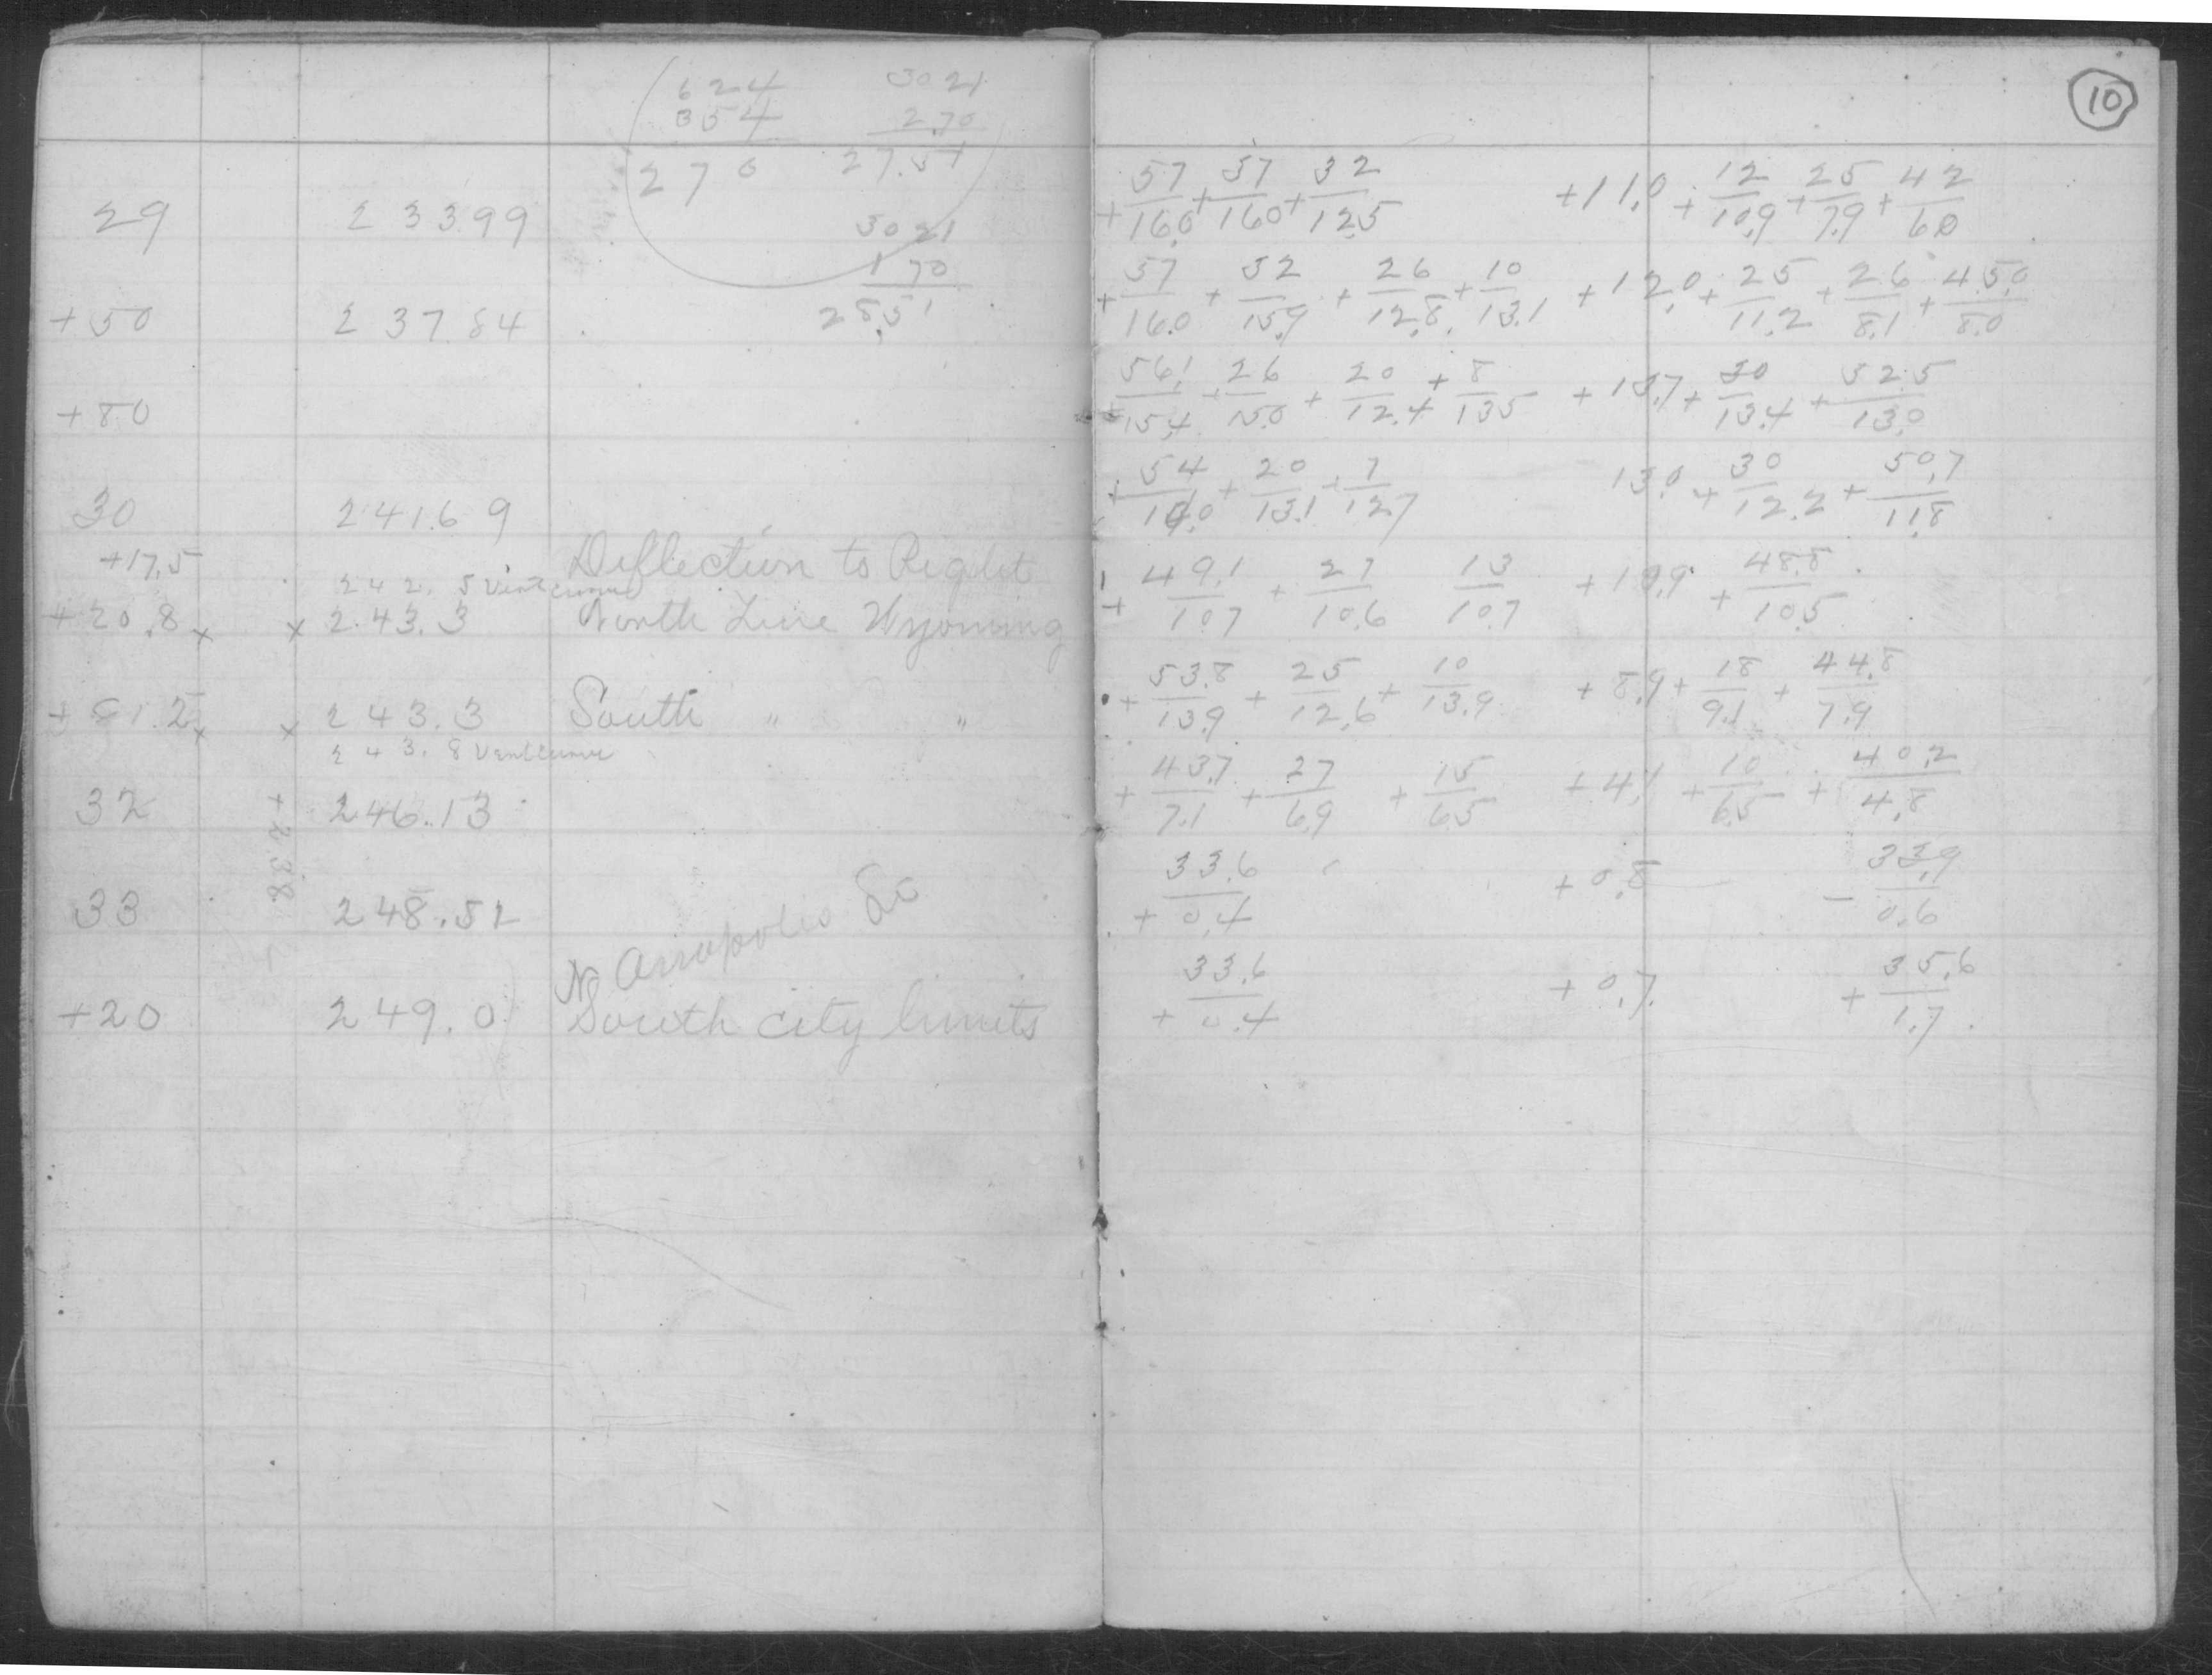 10
624 3021
354 2.70
270 27.51
3021
170
28.51
29 233.99
+50 237.84
+80
30 241.69
+17.5 Deflection to Right
242.5 Vert curve
+20.8 x x 243.3 North Line Wyoming
+81.2 x x 243.3 South " "
243.8 Vert curve
32 246.13
+2.38
33 248.52
N
+20 249.0 South city limits
+57/16.0 +37/16.0 +32/12.5 +11.0 +12/10.9 +25/7.9 +42/6.0
+57/16.0 +32/15.9 +26/12.8 +10/13.1 +12.0 +25/11.2 +26/8.1 +45.0/8.0
+56.1/15.4 +26/15.0 +20/12.4 +8/13.5 +13.7 +30/13.4 +52.5/13.0
+54/14.0 +20/13.1 +7/12.7 13.0 +30/12.2 +50.7/11.8
+49.1/10.7 +27/10.6 13/10.7 +10.9 +48.8/10.5
+53.8/13.9 +25/12.6 +10/13.9 +8.9 +18/9.1 +44.8/7.9
+43.7/7.1 +27/6.9 +15/6.5 +4.1 +10/6.5 +40.2/4.8
33.6/+0.4 +0.8 33.9/-0.6
33.6/+0.4 +0.7 +35.6/1.7